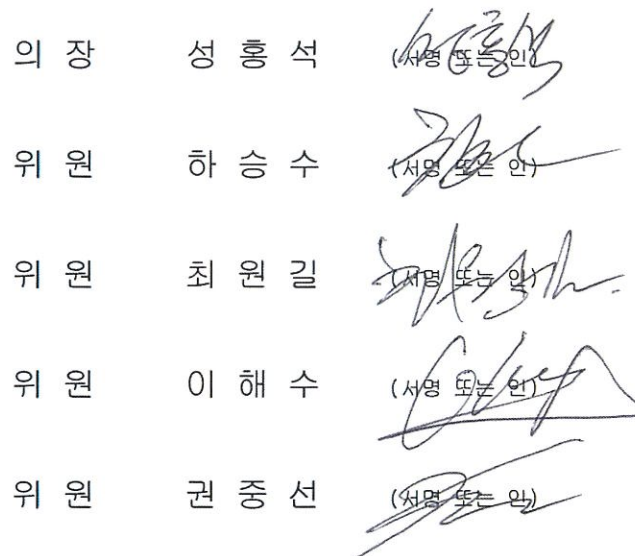 의 장 성 홍 석 (서명 또는 인)
위 원 하 승 수 (서명 또는 인)
위 원 최 원 길 (서명 또는 인)
위 원 이 해 수 (서명 또는 인)
위 원 권 중 선 (서명 또는 인)